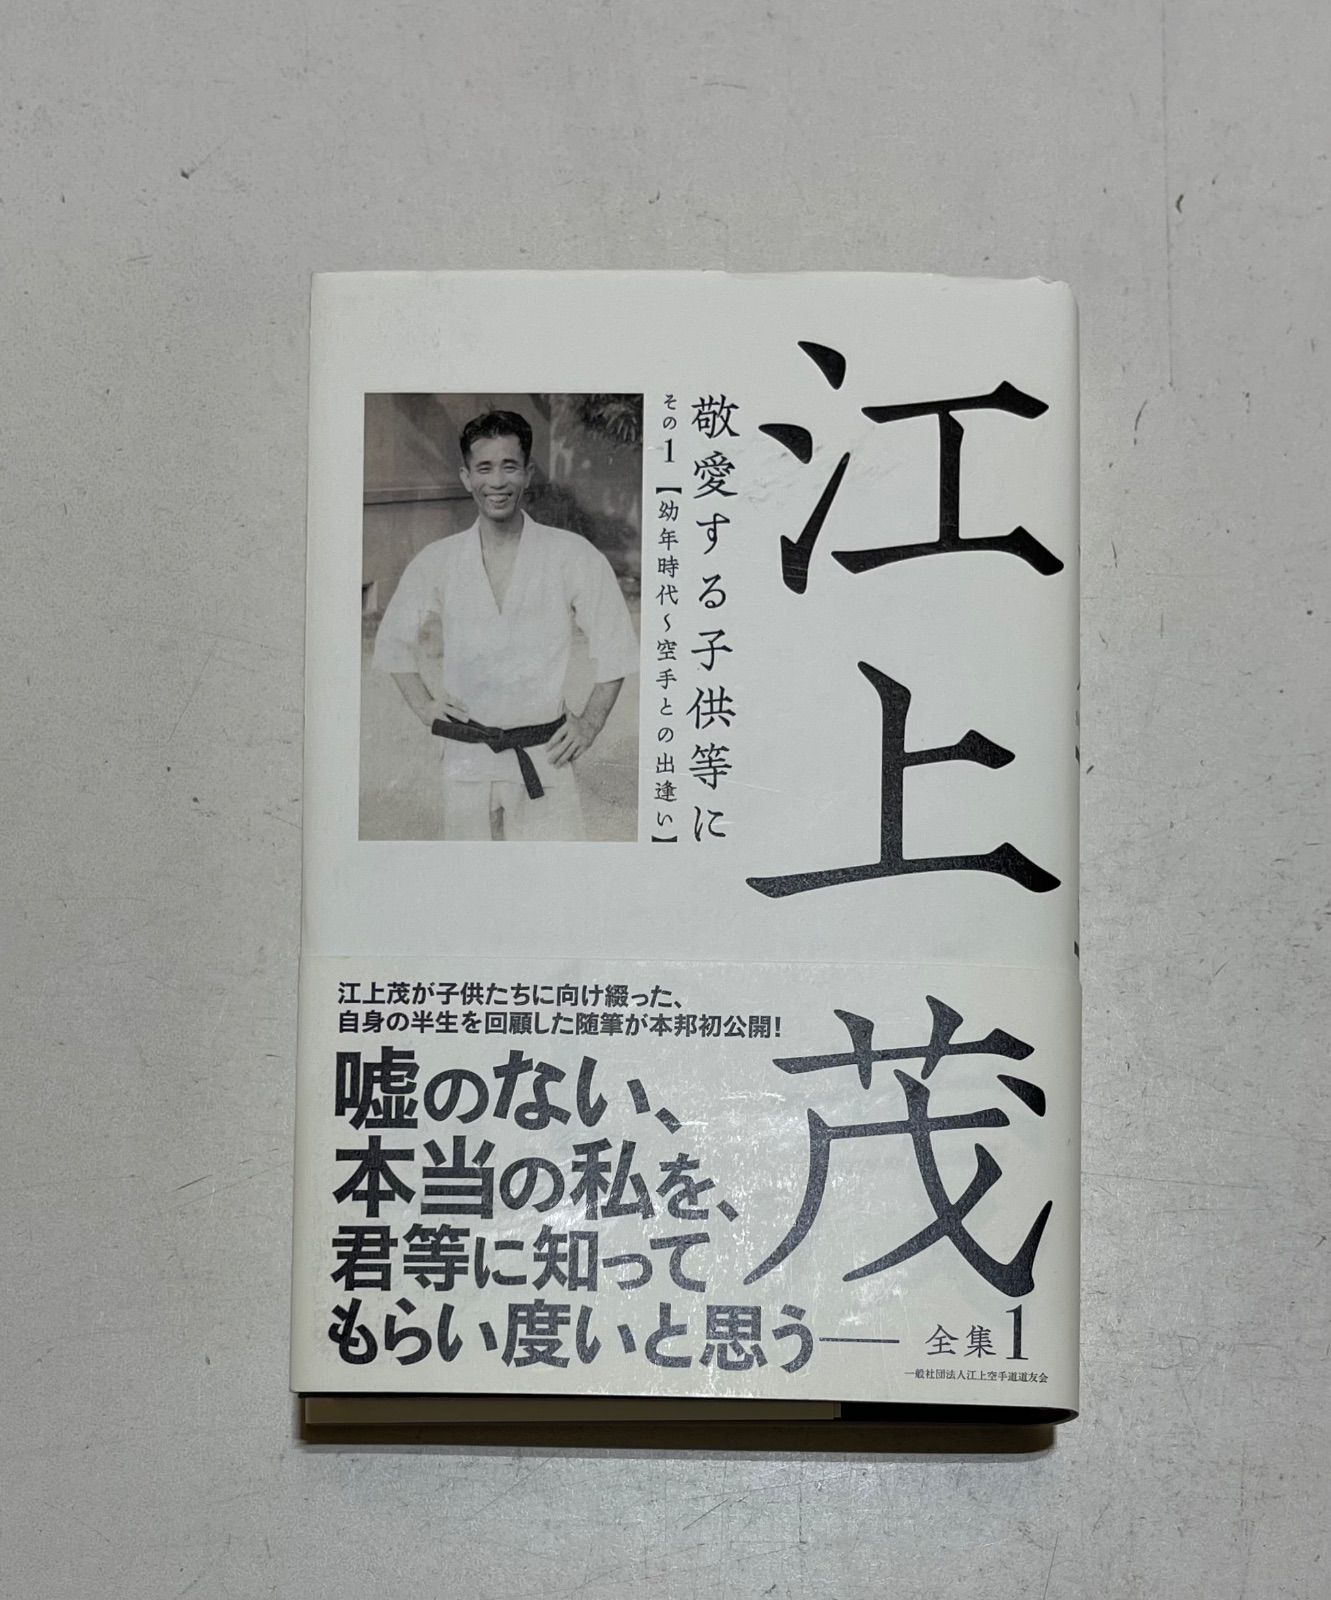 江上茂
敬愛する子供等に
その1【幼年時代～空手との出逢い】
江上茂が子供たちに向け綴った、
自身の半生を回顧した随筆が本邦初公開！
嘘のない、
本当の私を、
君等に知って
もらい度いと思う――
全集1
一般社団法人江上空手道道友会